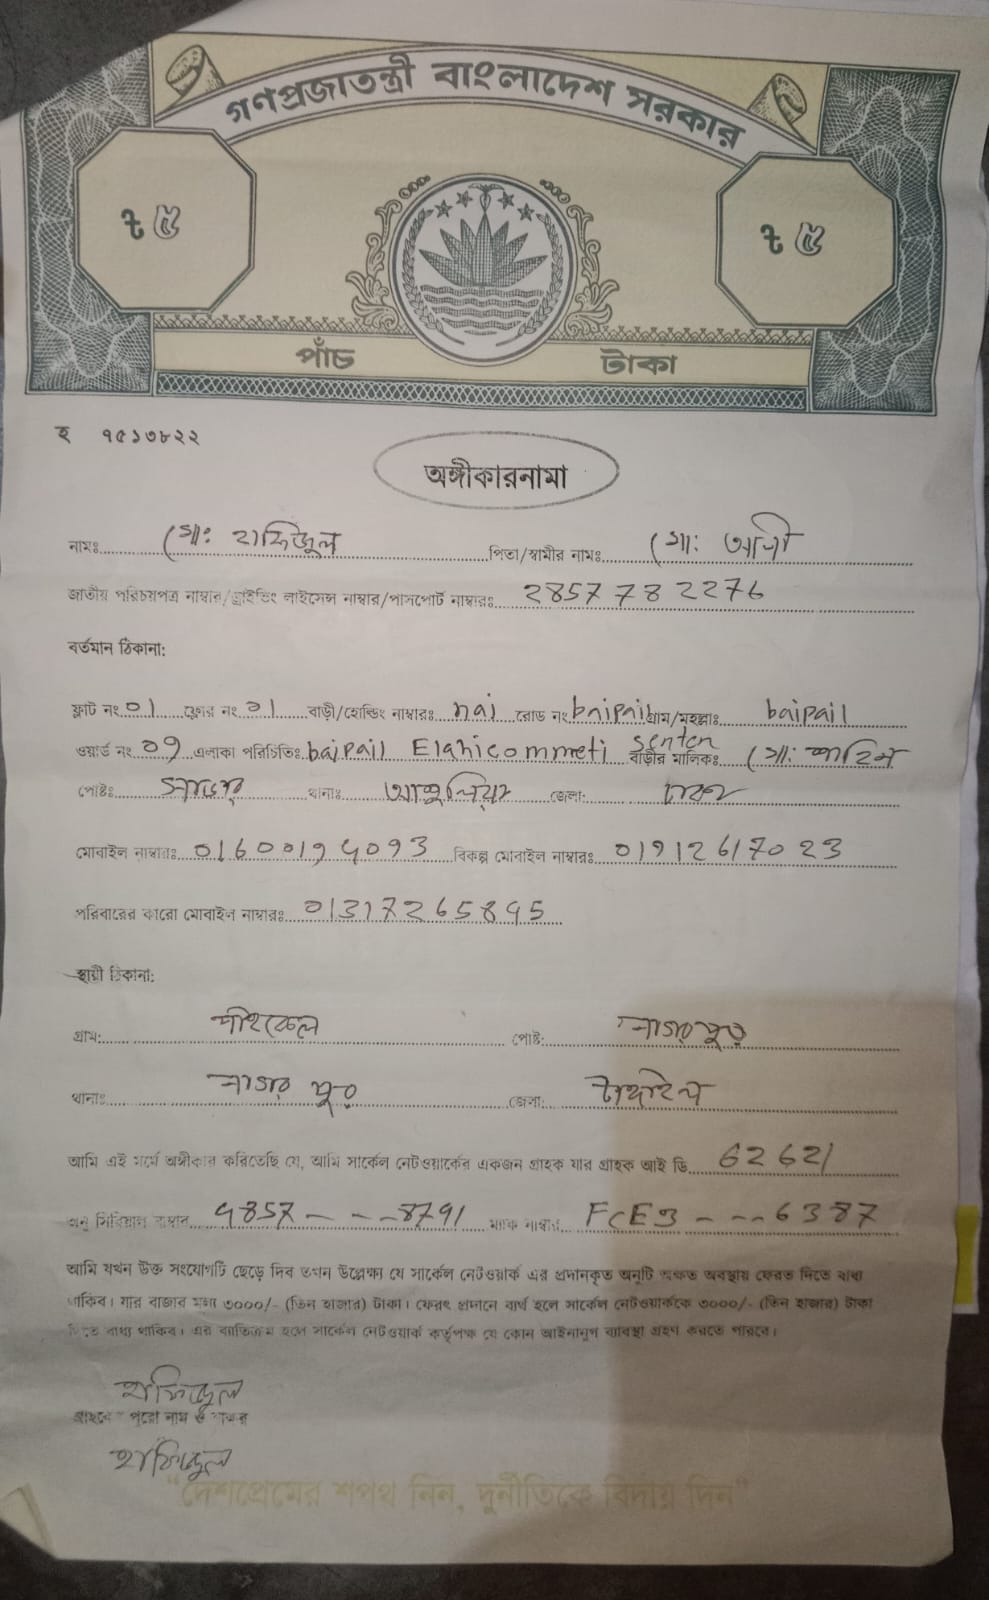 গণপ্রজাতন্ত্রী বাংলাদেশ সরকার
৳ ৫ ৳ ৫
পাঁচ টাকা
হ ৭৫১৩৮২২
অঙ্গীকারনামা
নামঃ মোঃ হাফিজুল পিতা/স্বামীর নামঃ মোঃ আলী
জাতীয় পরিচয়পত্র নাম্বার/ড্রাইভিং লাইসেন্স নাম্বার/পাসপোর্ট নাম্বারঃ 2857782276
বর্তমান ঠিকানা:
ফ্লাট নং 01 ফ্লোর নং 01 বাড়ী/হোল্ডিং নাম্বারঃ nai রোড নং baipail গ্রাম/মহল্লাঃ baipail
ওয়ার্ড নং 09 এলাকা পরিচিতিঃ baipail Elahicommeti senten বাড়ীর মালিকঃ মোঃ
পোষ্টঃ সাভার থানাঃ আশুলিয়া জেলা: ঢাকা
মোবাইল নাম্বারঃ বিকল্প মোবাইল নাম্বারঃ 01912617023
পরিবারের কারো মোবাইল নাম্বারঃ
স্থায়ী ঠিকানা:
গ্রাম: পাইকেল পোষ্ট: নাগরপুর
থানাঃ নাগরপুর জেলা: টাঙ্গাইল
আমি এই মর্মে অঙ্গীকার করিতেছি যে, আমি সার্কেল নেটওয়ার্কের একজন গ্রাহক যার গ্রাহক আই ডি 62621
অনু সিরিয়াল নাম্বার 4857---8791 ম্যাক নাম্বার FCE3---6387
আমি যখন উক্ত সংযোগটি ছেড়ে দিব তখন উল্লেক্ষ্য যে সার্কেল নেটওয়ার্ক এর প্রদানকৃত অনুটি অক্ষত অবস্থায় ফেরত দিতে বাধ্য
থাকিব। যার বাজার মূল্য ৩০০০/- (তিন হাজার) টাকা। ফেরৎ প্রদানে ব্যর্থ হলে সার্কেল নেটওয়ার্ককে ৩০০০/- (তিন হাজার) টাকা
দিতে বাধ্য থাকিব। এর ব্যতিক্রম হলে সার্কেল নেটওয়ার্ক কর্তৃপক্ষ যে কোন আইনানুগ ব্যবস্থা গ্রহণ করতে পারবে।
হাফিজুল
গ্রাহকের পুরো নাম ও স্বাক্ষর
হাফিজুল
"দেশপ্রেমের শপথ নিন, দুর্নীতিকে বিদায় দিন"